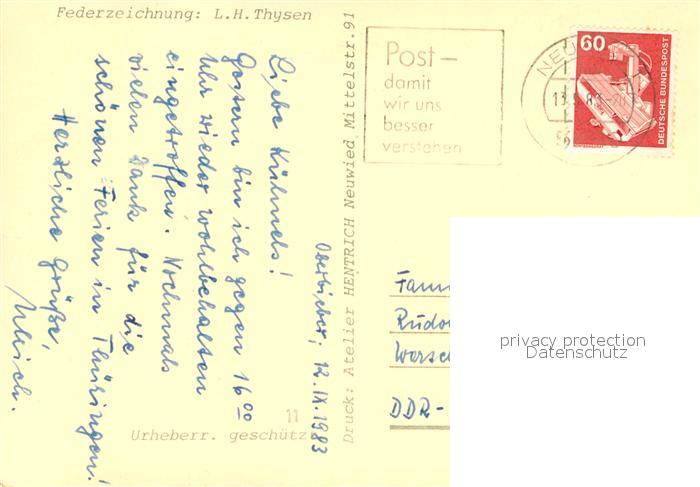 Federzeichnung: L.H.Thysen
Oberbieber, 12.IX.1983
Liebe Kühnels!
Gestern bin ich gegen 16 00
Uhr wieder wohlbehalten
eingetroffen. Nochmals
vielen Dank für die
schönen Ferien in Thüringen!
Herzliche Grüße,
Ulrich.
Urheberr. geschützt
11
Druck: Atelier HENTRICH Neuwied, Mittelstr.91
Post-
damit
wir uns
besser
verstehen
NEU
60
DEUTSCHE BUNDESPOST
Rudo
DDR-
privacy protection
Datenschutz